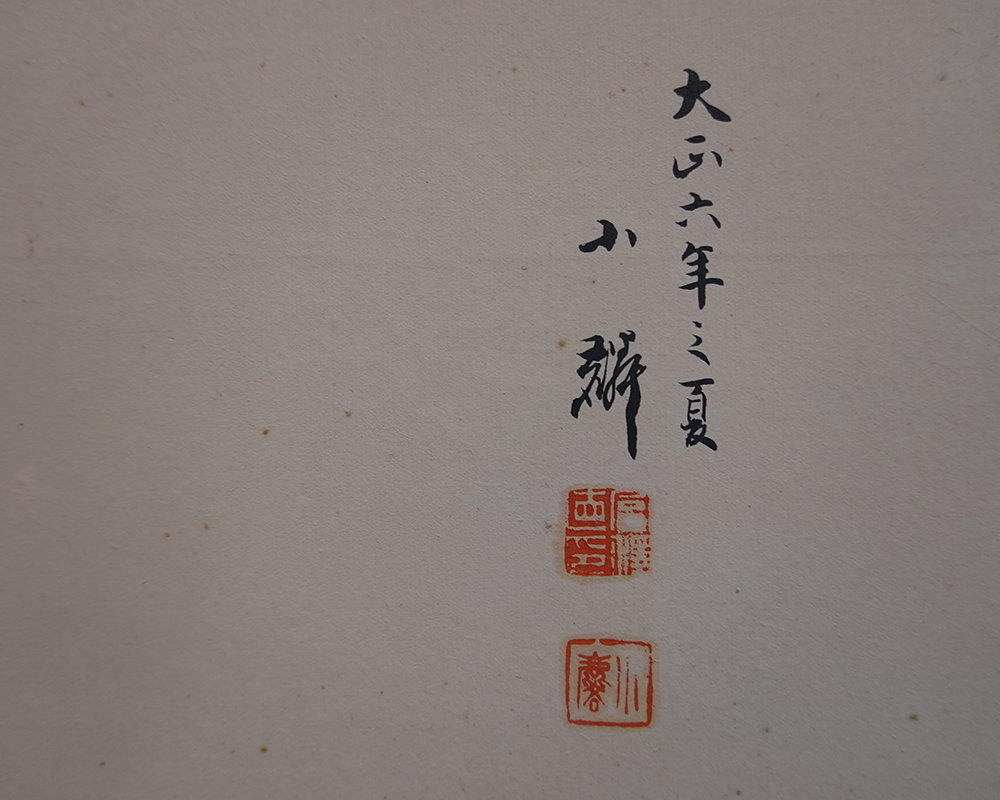 大正六年之夏
小麟
小麐